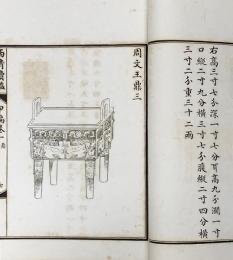 周文王鼎三
右高三寸七分深一寸七分耳高九分濶一寸
口縱二寸九分橫三寸七分腹縱二寸四分橫
三寸二分重三十二兩
西清續鑑
甲編卷一